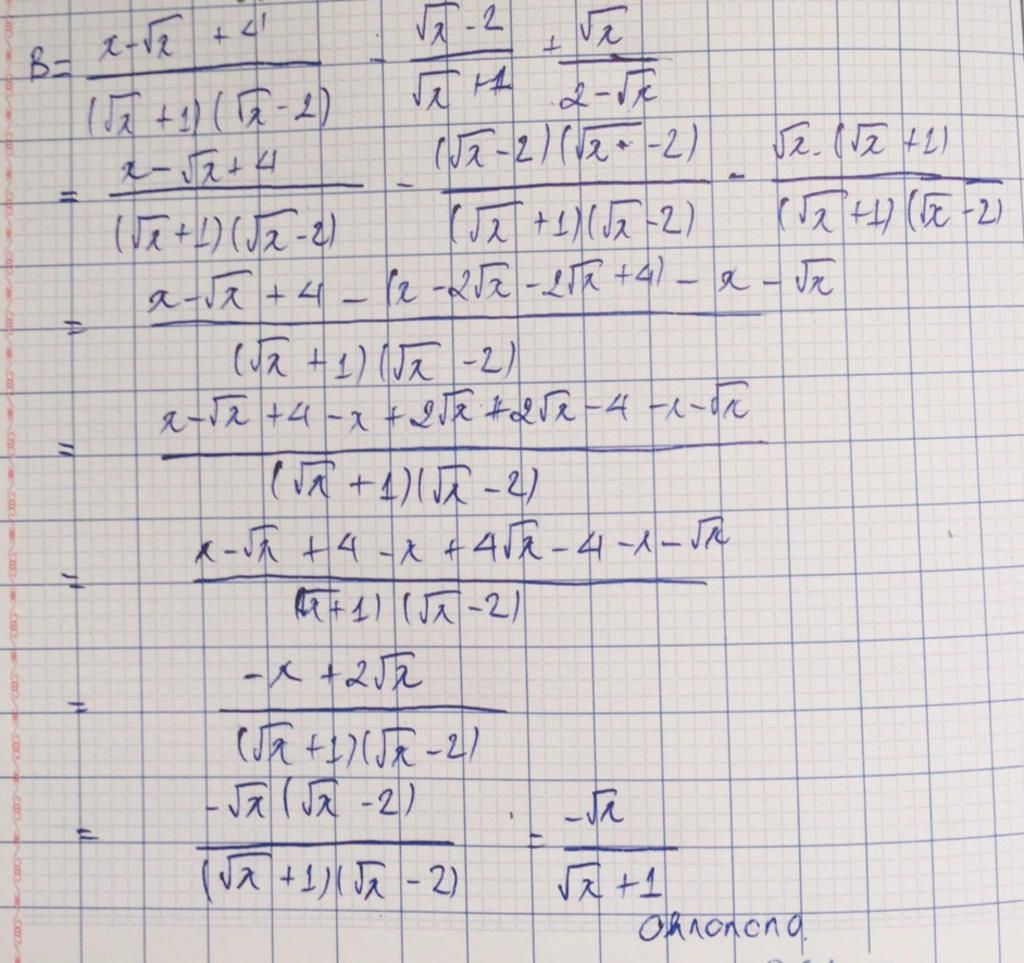 B = (x - √x + 4) / ((√x + 1)(√x - 2)) - (√x - 2) / (√x + 1) + √x / (2 - √x)
= (x - √x + 4) / ((√x + 1)(√x - 2)) - ((√x - 2)(√x - 2)) / ((√x + 1)(√x - 2)) - (√x . (√x + 1)) / ((√x + 1)(√x - 2))
= (x - √x + 4 - (x - 2√x - 2√x + 4) - x - √x) / ((√x + 1)(√x - 2))
= (x - √x + 4 - x + 2√x + 2√x - 4 - x - √x) / ((√x + 1)(√x - 2))
= (x - √x + 4 - x + 4√x - 4 - x - √x) / ((√x + 1)(√x - 2))
= (-x + 2√x) / ((√x + 1)(√x - 2))
= (-√x (√x - 2)) / ((√x + 1)(√x - 2)) = -√x / (√x + 1)